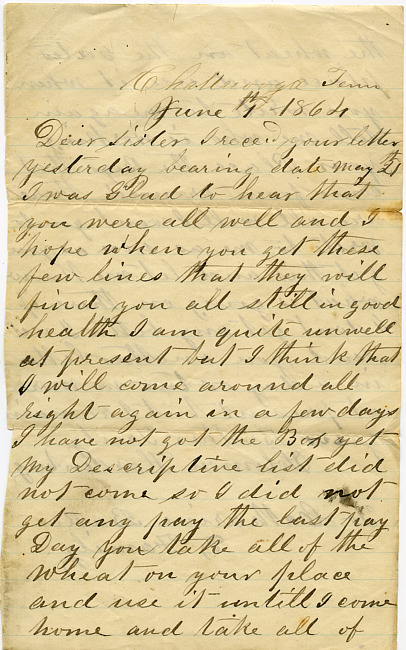 Chattanooga Tenn
June 1st 1864
Dear Sister I reced your letter
yesterday bearing date May 21
I was Glad to hear that
you were all well and I
hope when you get these
few lines that they will
find you all still in good
health I am quite unwell
at present but I think that
I will come around all
right again in a few days
I have not got the Box yet
My Descriptive list did
not come so I did not
get any pay the last pay
Day you take all of the
wheat on your place
and use it untill I come
home and take all of